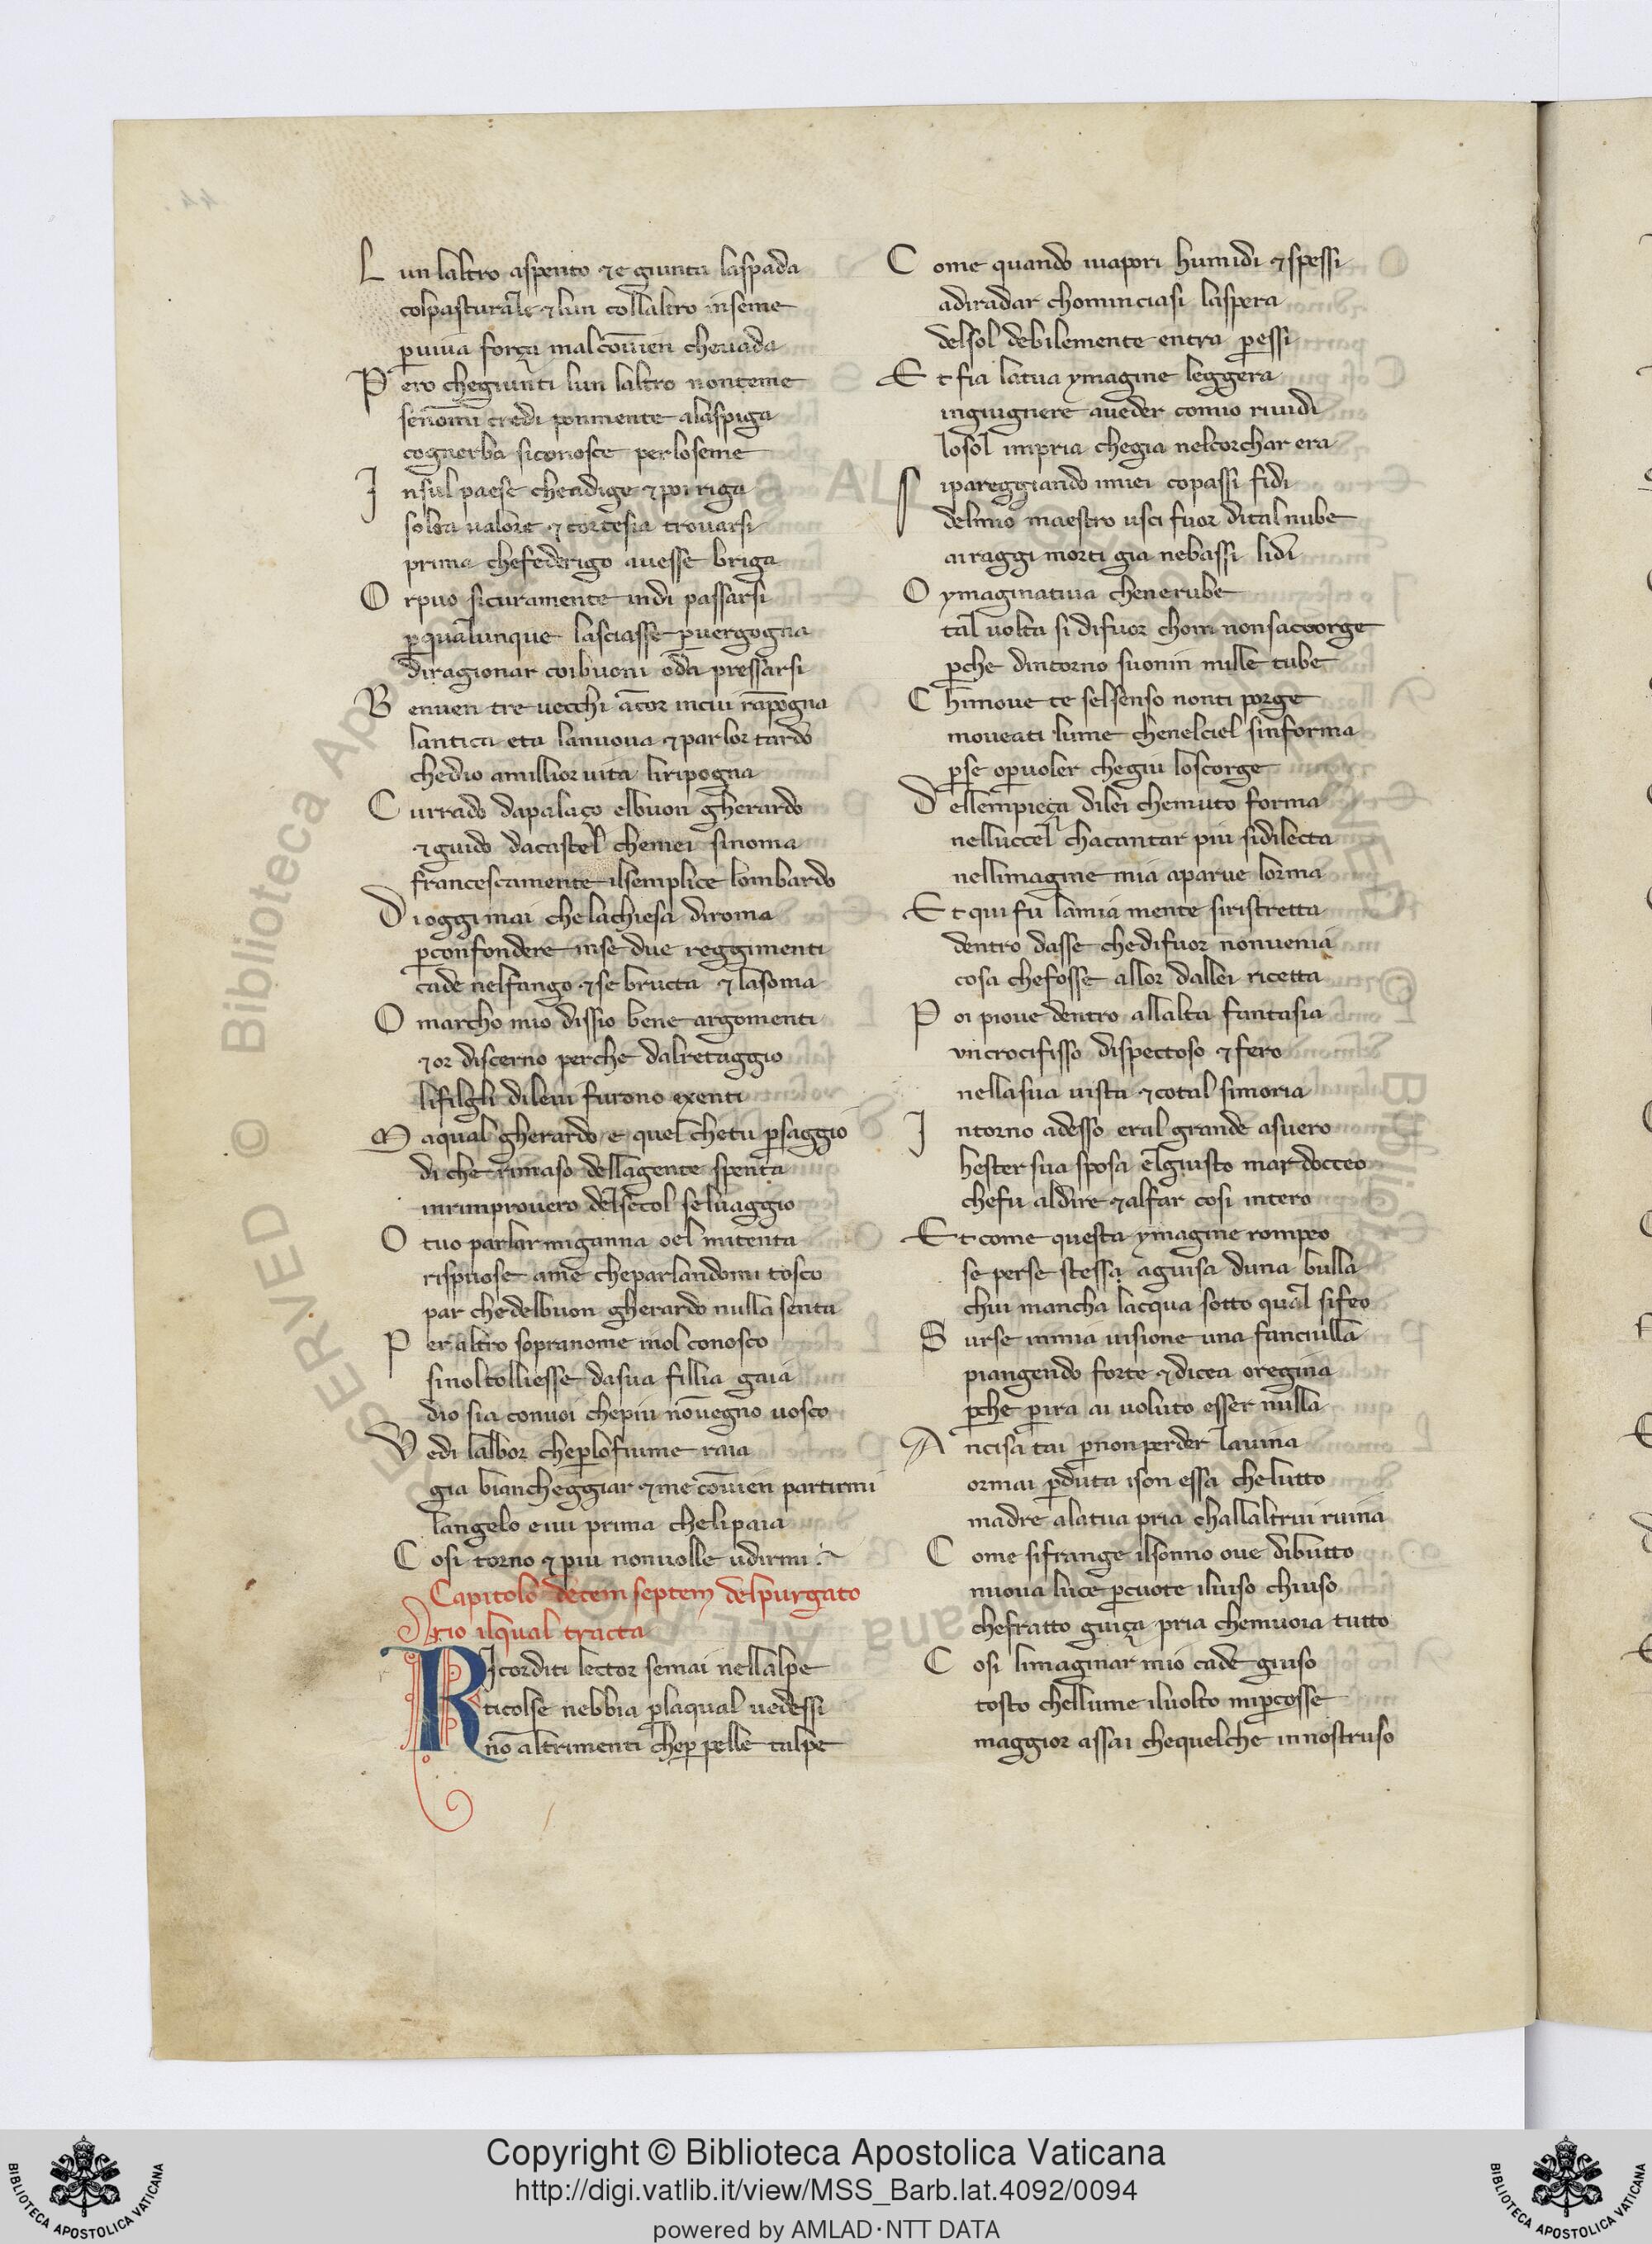 L un laltro aspento ⁊ e giunta laspada
colpasturale ⁊ lun collaltro inseme
p̱ uiua força mal cōuien cheuada
P ero chegiunti lun laltro nonteme
senōmi credi ponmente alaspiga
cognerba siconosce perloseme
I nsul paese chendige ⁊ poi riga
solea ualore ⁊ cortesia trouarsi
prima chefederigo auesse briga
O rpuo sicuramente indi passarsi
p̱qualunque lasciasse p̱uergogna
diragionar coibuoni oda pressarsi
B enuen tre uecchi ācor incui rāpogna
lantica eta lanuoua ⁊ parlor tardo
chedio amillior uita liripogna
C urrado dapalaço elbuon gherardo
⁊ guido dacastel chemei sinoma
francescamente ilsemplice lombardo
D i oggi mai che lachiesa diroma
p̱confondere inse due reggimenti
cade nelfango ⁊ se bructa ⁊ lasoma
O marcho mio dissio bene argomenti
⁊ or discerno perche dalretaggio
lifilgli dileui furono exenti
M aqual gherardo e quel chetu p̱saggio
di che rimaso dellagente spenta
inrimprouero delsecol seluaggio
O tuo parlar miganna oel mitenta
rispuose ame cheparlandomi tosco
par chedelbuon gherardo nulla senta
P er altro sopranome inol conosco
sinoltolliesse dasua fillia gaia
dio sia conuoi chepiu nōuegno uosco
V edi lalbor chep̱lofiume raia
gia biancheggiar ⁊ me cōuien partirmi
langelo eiui prima chelipaia
C osi torno ⁊ piu nonuolle udirmi
Capitolo decem septem delpurgato
rio ilqual tracta
RIcorditi lector semai nellalpe
ticolse nebbia p̱laqual uedessi
nō altrimenti chep̱ pelle talpe
C ome quando iuapori humidi ⁊ spessi
adiradar chominciasi laspera
delsol debilemente entra p̱essi
E t fia latua ymagine leggera
ingiugnere aueder comio riuidi
losol impria chegia nelcorchar era
S ipareggiando imiei copassi fidi
delmio maestro usci fuor dital nube
airaggi morti gia nebassi lidi
O ymaginatiua chenerube
tal uolta si difuor chom nonsaccorge
p̱che dintorno suonin mille tube
C himoue te selsenso nonti porge
moueati lume chenelciel sinforma
p̱se op̱uoler chegiu loscorge
D ellempieça dilei chemuto forma
nelluccel chacantar piu sidilecta
nellimagine mia aparue lorma
E t qui fu lamia mente siristretta
dentro dasse chedifuor nonuenia
cosa chefosse allor dallei ricetta
P oi pioue dentro allalta fantasia
vn crocifisso dispectoso ⁊ fero
nellasua uista ⁊ cotal simoria
I ntorno adesso eral grande asuero
hester sua sposa elgiusto mardocceo
chefu aldire ⁊ alfar cosi intero
E t come questa ymagine rompeo
se perse stessa aguisa duna bulla
chui mancha lacqua sotto qual sifeo
S urse inmia uisione una fanciulla
piangendo forte ⁊ dicea oregina
p̱che p̱ira ai uoluto esser nulla
A ncisa tai p̱nonperder lauina
ormai p̱duta ison essa chelutto
madre alatua pria challaltrui ruina
C ome sifrange ilsonno oue dibutto
nuoua luce p̱cuote iluiso chiuso
chefratto guiça pria chemuoia tutto
C osi limaginar mio cade giuso
tosto chellume iluolto mip̱cosse
maggior assai chequelche innostruso
Copyright © Biblioteca Apostolica Vaticana
http://digi.vatlib.it/view/MSS_Barb.lat.4092/0094
powered by AMLAD·NTT DATA
BIBLIOTECA APOSTOLICA VATICANA
BIBLIOTECA APOSTOLICA VATICANA